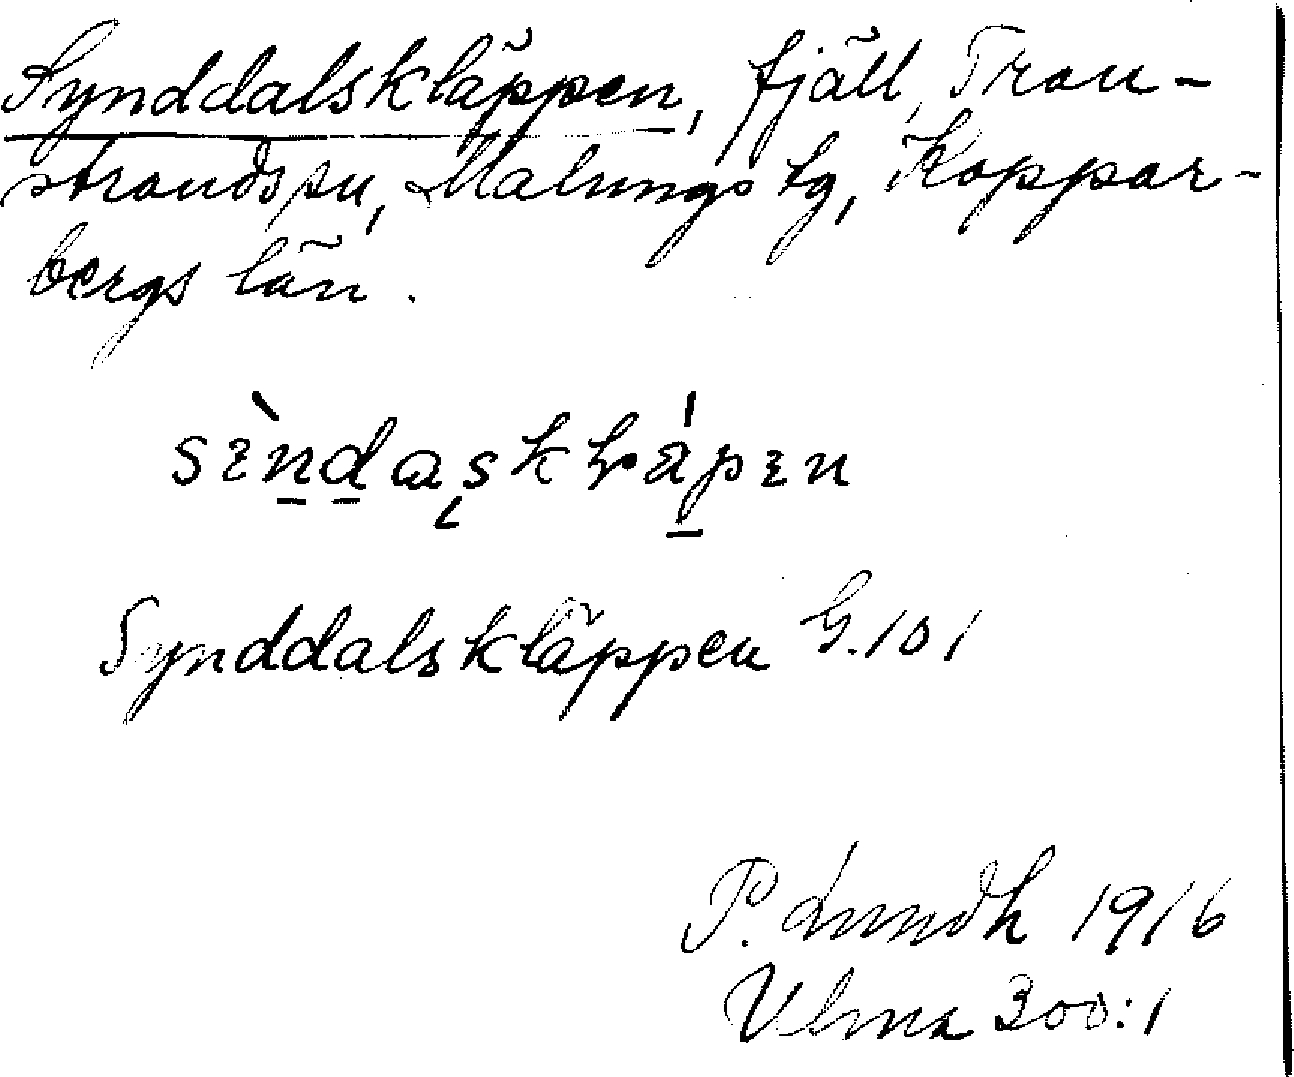 Synddalskläppen, fjäll, Tran-
strands sn, Malungs tg, Koppar-
bergs län.
Synddalskläppen G.101
P. Lundh 1916
Ulma 300:1